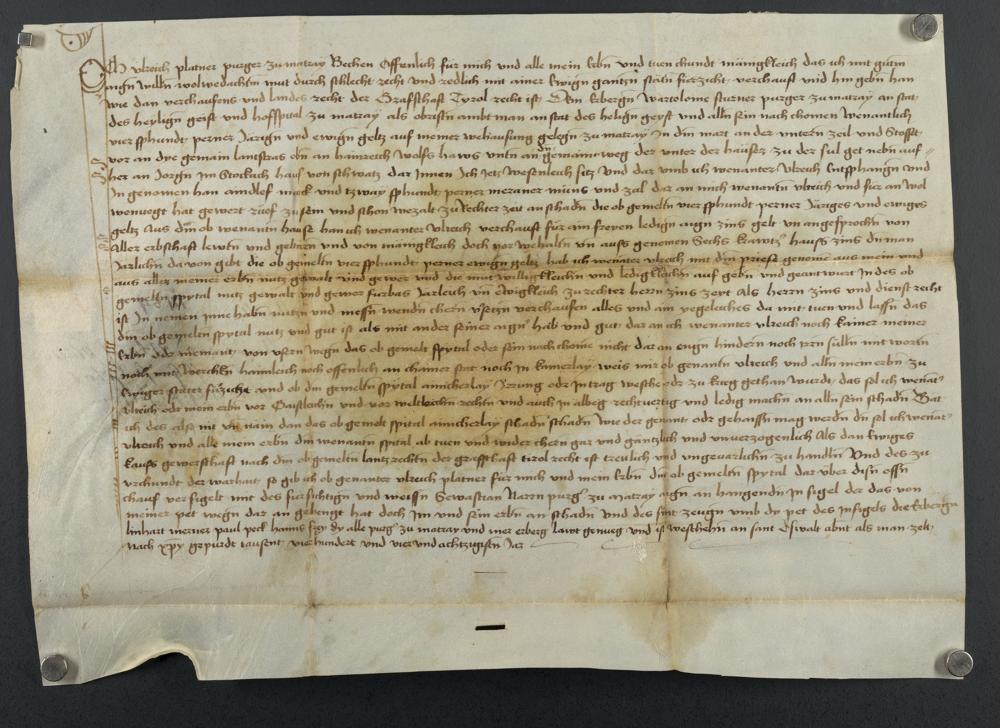 Ich ulreich platner purger zu matray Bechen Offenlich für mich und alle mein erbn und tuen chundt mänigkleich das ich mit gutem
aign willn wolwedachtm mut durch schlecht recht und redlich mit ainer ewign gantzn stätn fürzicht verchauft und hin gebn han
wie dan verchaufens und landes recht der Grafschaft Tyrol recht ist Dem Erbergn Wartolome sturner purger zu matray an stat
des heylign geist und hofspital zu matray als obristn ambt man an stat des heilgn geyst und alln sein nach chomen Wenantlich
vier pphundt perner Järign und ewign geltz auf meiner wehausung gelegn zu matray In dm mart an der untern zeil und Stosset
vor an dye gemain lantstras obn an hainreich Wolfs haws untn an dn gemaine weg der unter der häuser zu der sul get nebn auf
her an Jorgn Im Stockach haus von schwatz dar Innen Ich Jetz Wesenleich sitz Und dar umb ich wenanter Ulreich Entphangn und
In genomen han aindlef march und tzway pphundt perner meraner müns und zal dar an mich wenantn ulreich und für an wol
wenuegt hat gewert zuef zusten und schon wezalt zu Rechter zeit an schadn die ob gemeltn vier pphundt perner Järiges und ewiges
geltz Aus dm ob wenantn hause han ich wenanter Ulreich verchauft für ain freyen ledign aign zins gelt un angesprochn von
Aller erbschaft lewtn und geltern und von mänigkleich doch vor wehaltn un auss genomen Sechs krawtzer hauss zins dn man
Järlichn da von gibt die ob gemeltn vier pphundt perner ewign geltz hab ich wenäter ulreich mit dm priefe genome aus mein und
aus aller meiner erbn nutz gewalt und gewer und die mit willigkleichn und ledigkleichn auf gebn und geantwurt In des ob
gemeltn spytal nutz gewalt und gewer fürbas Järleich un ewigkleich zu rechter herrn zins zeyt Als herrn zins und dienst recht
ist In nemen Inne habn nutzn und messn wendn chern vsetzn verchaufen alles und am yegeleiches da mit tuen und lassn das
dm ob gemeltn spytal nutz und gut ist als mit ander seiner aign hab und gut dar an ich wenanter ulreich noch kainer meiner
erbn oder niemant von vsern wegn das ob gemelt spytal oder sein nach chome nicht dar an engn hindern noch irrn sulln mit worten
noch mit Werckhn haimleich noch offenlich an chainer stat noch In kainerlay weis mir ob genantn ulreich und alln mein erbn zu
Ewiger stäter fürzicht und ob dm gemeltn spytal ainicherlay Irrung oder intrag westhe oder zu krieg gethan wurdt das sol ich wenāt
Ulreich oder mein erbn vor Gaistleichn und vor weltleichn rechtn und auch In albeg rechtuertig und ledig machn an alln sein schadn Tät
ich des also mit un näm dan das ob gemelt spital ainicherlay schadn schadn wie der genant oder gehaissn mag werdn dn sol ich wenāt
ulreich und alle mein erbn dm wenantn spital ab tuen und wider chern gar und gäntzlich und unverzogenlich Als dan Ewiges
kaufs gewerschaft nach dm obgemeltn lantzrechtn der graffschaft tirol recht ist treulich und ungevarlichn zu handln Und des zu
vrchundt der warhait so gib ich ob genanter ulreich platner für mich und mein Erbn dm ob gemeltn spytal dar über disn offn
chauf versigelt mit des fürsichtign und weissn Sewastian Närrn purger zu matray aign an hangendn In sigel der das von
meiner pet wegn dar an gehengt hat doch Im und sein erbn an schadn und des sint zeugn umb dy pet des Insigels die Erbergn
linhart merner paul peck hanns fry dy alle purger zu matray und mer erberg lawt genueg und ist weschehn an sant Oswalt abnt als man zelt
nach xpi gepurdt tausent vierhundert und vier und achtzigistn Jar